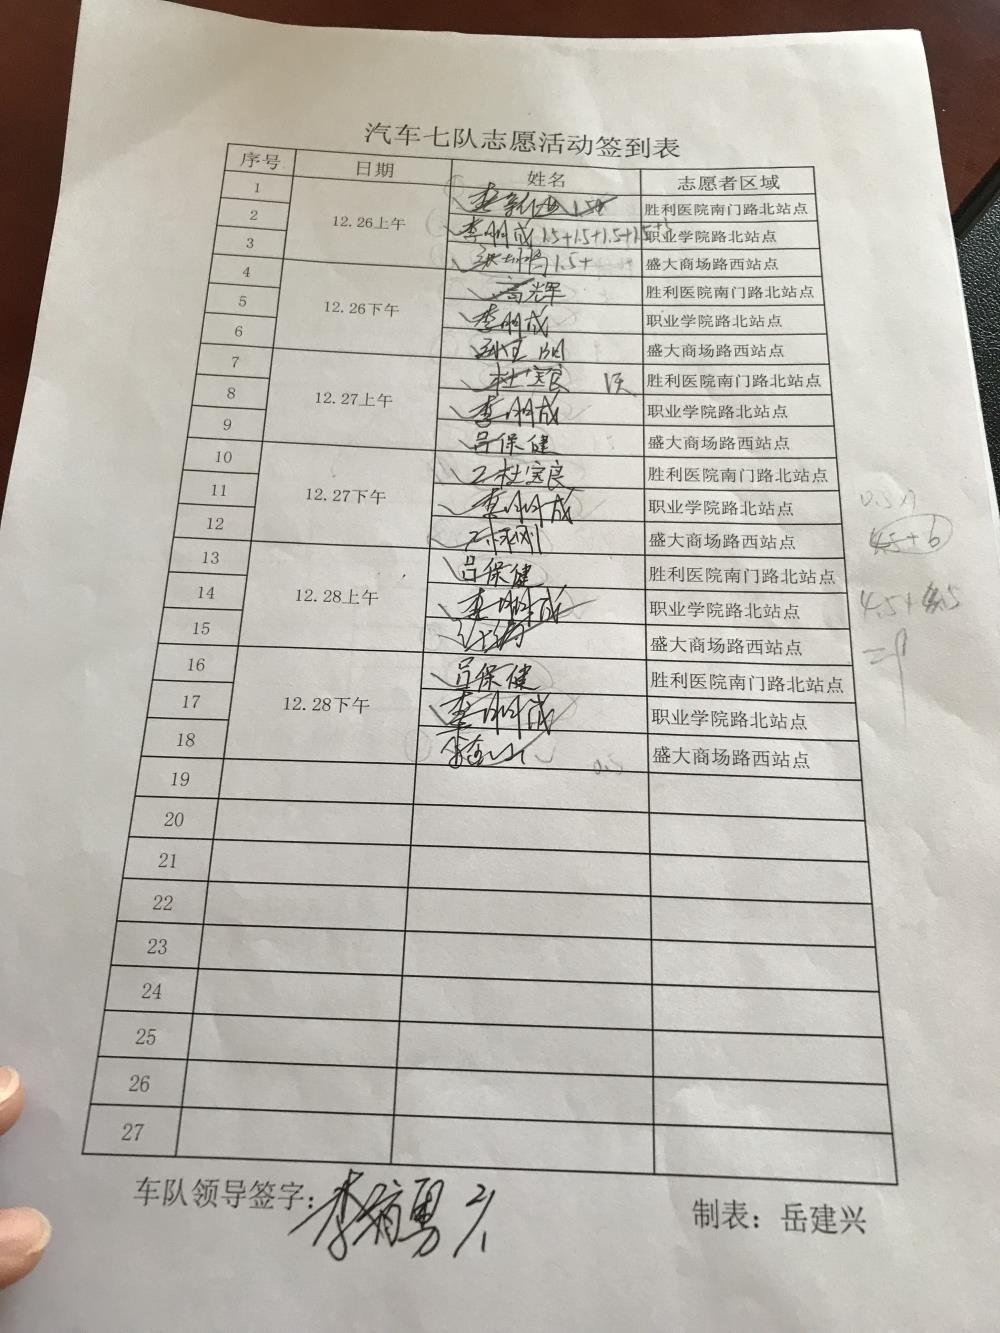 汽车七队志愿活动签到表
序号 日期 姓名 志愿者区域
1 12.26上午 胜利医院南门路北站点
2 李明成 1.5+1.5+1.5+1.5+ 职业学院路北站点
3 1.5+ 盛大商场路西站点
4 12.26下午 高光辉 胜利医院南门路北站点
5 李明成 职业学院路北站点
6 盛大商场路西站点
7 12.27上午 杜宝良 胜利医院南门路北站点
8 李明成 职业学院路北站点
9 吕保健 盛大商场路西站点
10 12.27下午 杜宝良 胜利医院南门路北站点
11 李明成 职业学院路北站点
12 盛大商场路西站点
13 12.28上午 吕保健 胜利医院南门路北站点
14 李明成 职业学院路北站点
15 盛大商场路西站点
16 12.28下午 吕保健 胜利医院南门路北站点
17 李明成 职业学院路北站点
18 盛大商场路西站点
19
20
21
22
23
24
25
26
27
车队领导签字: 制表: 岳建兴